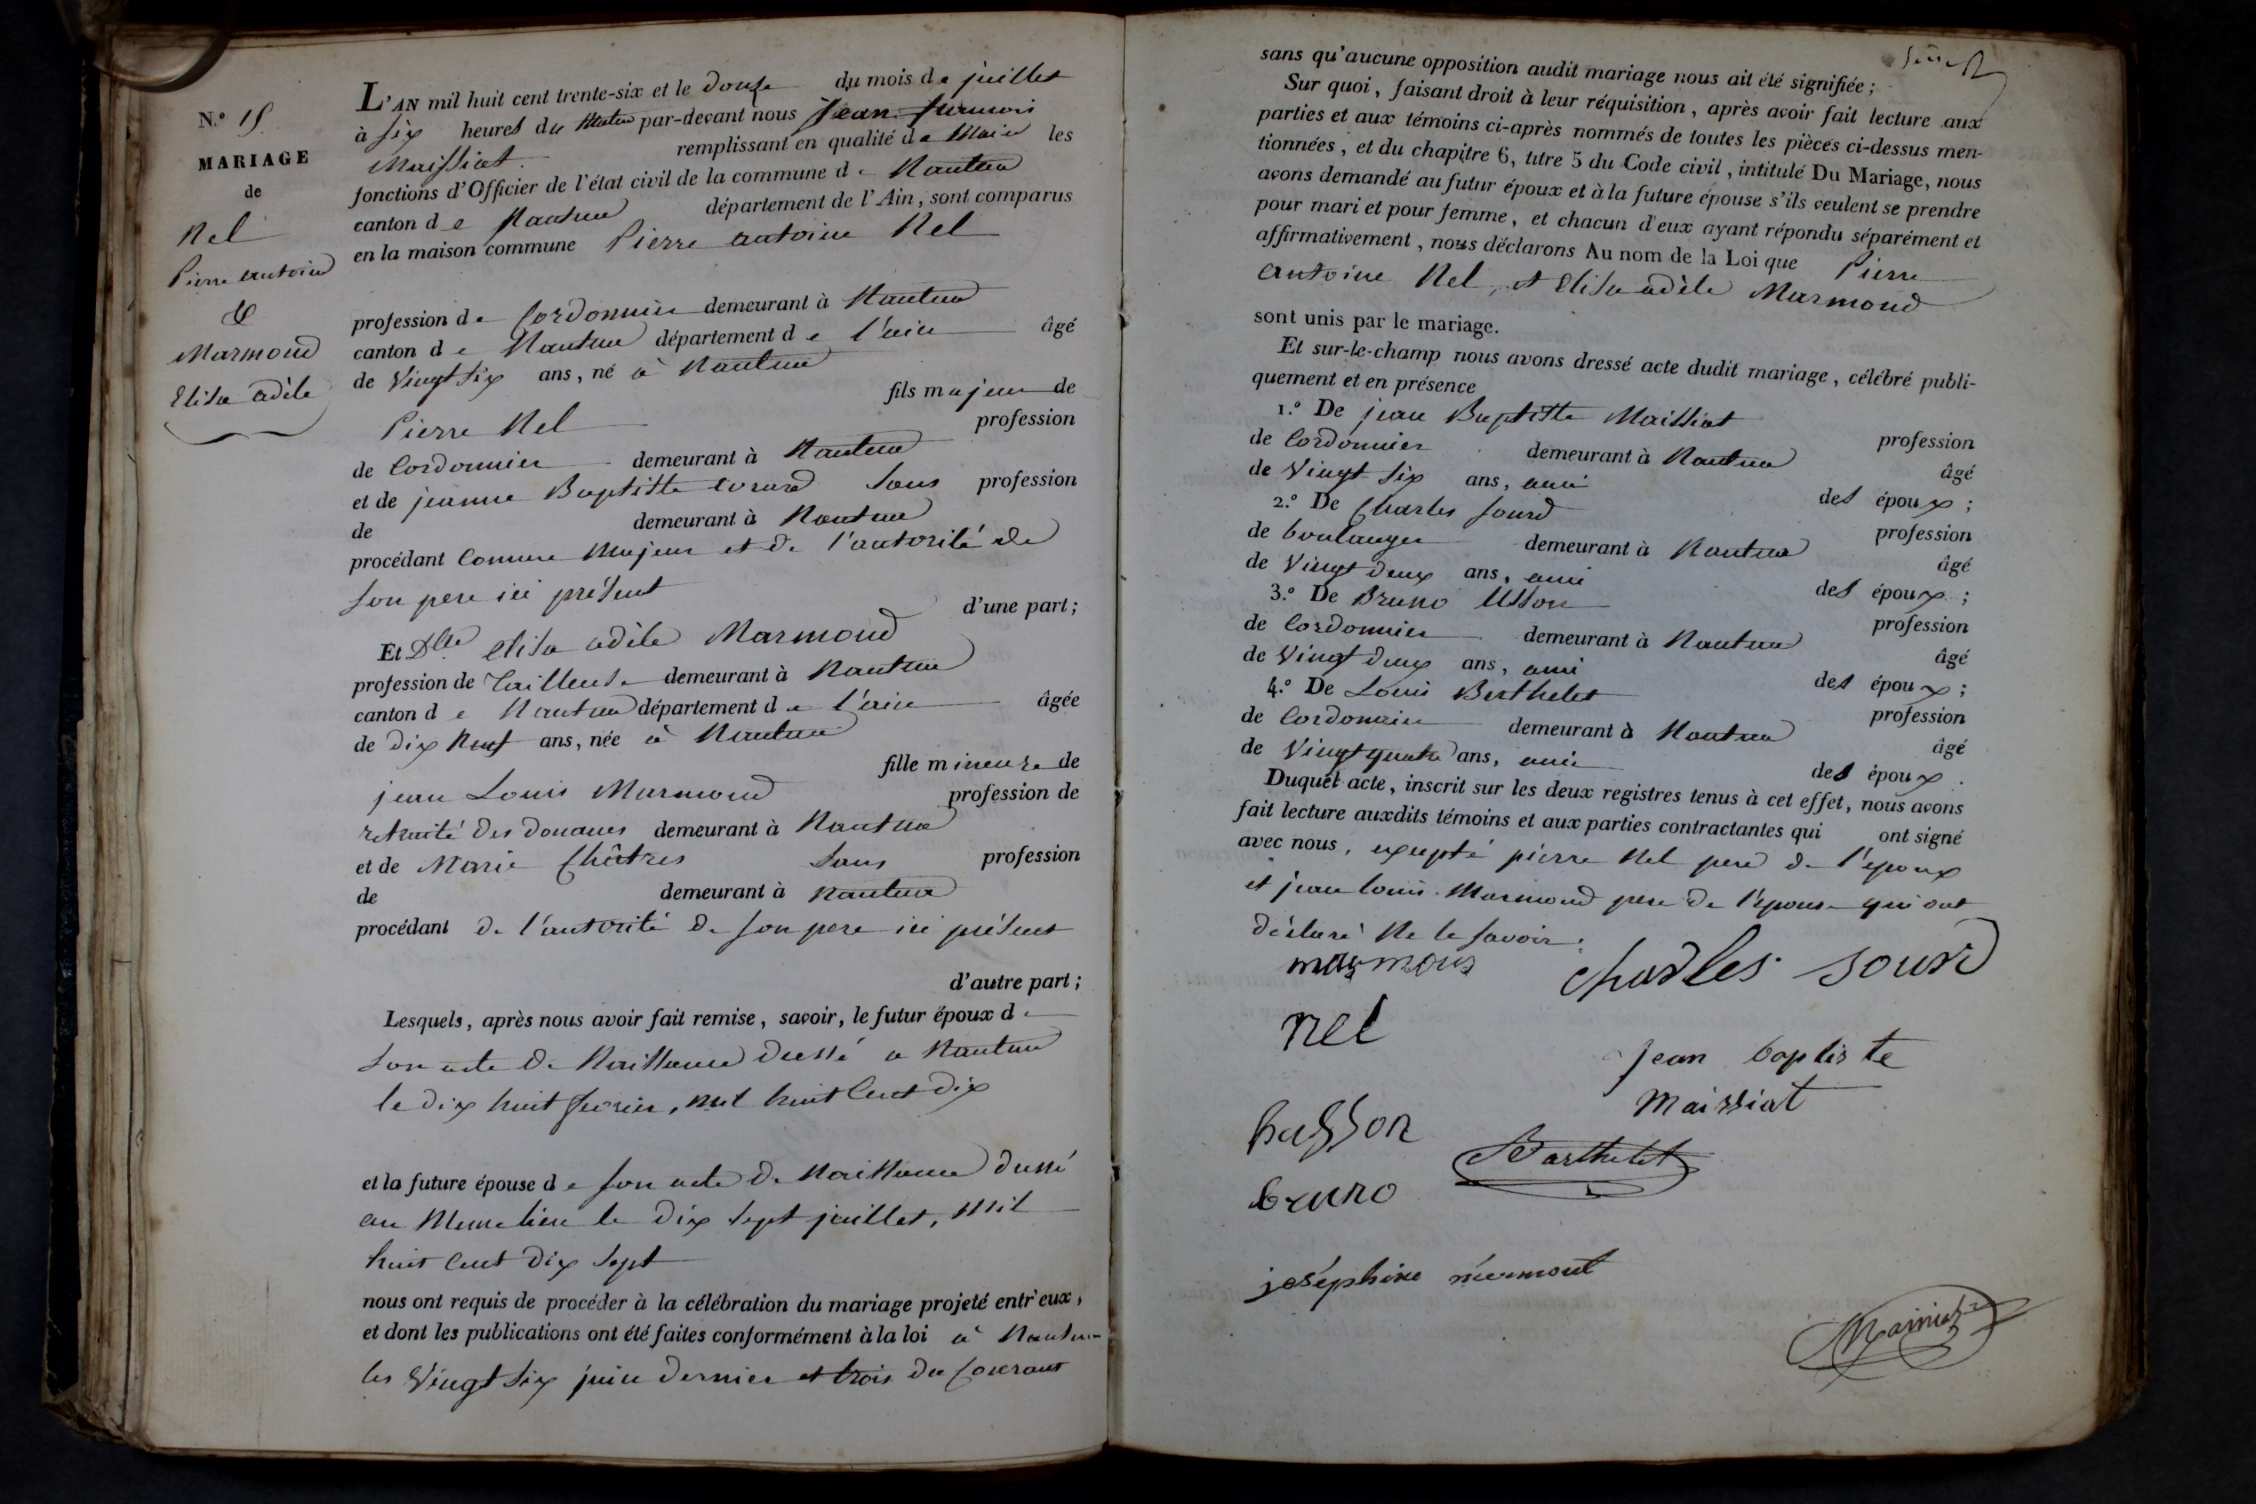 N.° 15
MARIAGE
de
Nel
Pierre antoine
&
Marmond
Elisa adèle
L'AN mil huit cent trente-six et le douze du mois de juillet
à six heures du matin par-devant nous Jean francois
Maissiat remplissant en qualité de Maire les
fonctions d'Officier de l'état civil de la commune de Nantua
canton de Nantua département de l'Ain, sont comparus
en la maison commune Pierre antoine Nel
profession de Cordonnier demeurant à Nantua
canton de Nantua département de l'ain âgé
de Vingt six ans, né à Nantua
fils majeur de
Pierre Nel profession
de Cordonnier demeurant à Nantua
et de jeanne Baptiste sans profession
de demeurant à Nantua
procédant comme Majeur et de l'autorité de
son pere ici présent
d'une part;
Et Dlle elisa adèle Marmond
profession de Tailleuse demeurant à Nantua
canton de Nantua département de l'ain âgée
de dix Neuf ans, née à Nantua
fille mineure de
jean Louis Marmond profession de
retraité des douanes demeurant à Nantua
et de Marie Châtres sans profession
de demeurant à Nantua
procédant de l'autorité de son pere ici présent
d'autre part;
Lesquels, après nous avoir fait remise, savoir, le futur époux de
son acte de Naissance dressé a Nantua
le dix huit fevrier, mil huit Cent dix
et la future épouse de son acte de Naissance dressé
au Meme lieu le dix sept juillet, mil
huit Cent dix sept
nous ont requis de procéder à la célébration du mariage projeté entr'eux,
et dont les publications ont été faites conformément à la loi à Nantua
les Vingt six juin dernier et trois du Courant
sans qu'aucune opposition audit mariage nous ait été signifiée;
Sur quoi, faisant droit à leur réquisition, après avoir fait lecture aux
parties et aux témoins ci-après nommés de toutes les pièces ci-dessus men-
tionnées, et du chapitre 6, titre 5 du Code civil, intitulé Du Mariage, nous
avons demandé au futur époux et à la future épouse s'ils veulent se prendre
pour mari et pour femme, et chacun d'eux ayant répondu séparément et
affirmativement, nous déclarons Au nom de la Loi que Pierre
antoine Nel, et Elisa adèle Marmond
sont unis par le mariage.
Et sur-le-champ nous avons dressé acte dudit mariage, célébré publi-
quement et en présence
1.° De jean Baptiste Maissiat profession
de Cordonnier demeurant à Nantua âgé
de Vingt six ans, ami des époux;
2.° De Charles Sourd profession
de boulanger demeurant à Nantua âgé
de Vingt deux ans, ami des époux;
3.° De Bruno Usson profession
de Cordonnier demeurant à Nantua âgé
de Vingt deux ans, ami des époux;
4.° De Louis Berthelet profession
de Cordonnier demeurant à Nantua âgé
de Vingt quatre ans, ami des époux.
Duquel acte, inscrit sur les deux registres tenus à cet effet, nous avons
fait lecture auxdits témoins et aux parties contractantes qui ont signé
avec nous, excepté pierre Nel pere de l'epoux
et jean louis Marmond pere de l'epouse qui ont
déclaré Ne le savoir.
Charles Sourd
nel
jean baptiste
Maissiat
husson
Barthelet
bruno
joséphine mermont